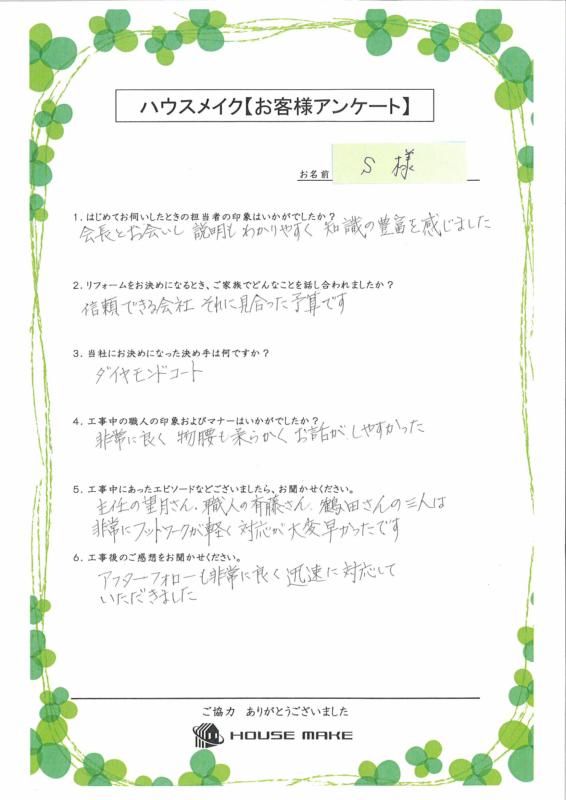 ハウスメイク【お客様アンケート】
お名前 S 様
1．はじめてお伺いしたときの担当者の印象はいかがでしたか？
会長とお会いし 説明もわかりやすく 知識の豊富を感じました
2．リフォームをお決めになるとき、ご家族でどんなことを話し合われましたか？
信頼できる会社 それに見合った予算です
3．当社にお決めになった決め手は何ですか？
ダイヤモンドコート
4．工事中の職人の印象およびマナーはいかがでしたか？
非常に良く 物腰も柔らかく お話がしやすかった
5．工事中にあったエピソードなどございましたら、お聞かせください。
主任の望月さん、職人の斉藤さん、鶴田さんの三人は
非常にフットワークが軽く 対応が大変早かったです
6．工事後のご感想をお聞かせください。
アフターフォローも非常に良く 迅速に対応して
いただきました
ご協力 ありがとうございました
HOUSE MAKE